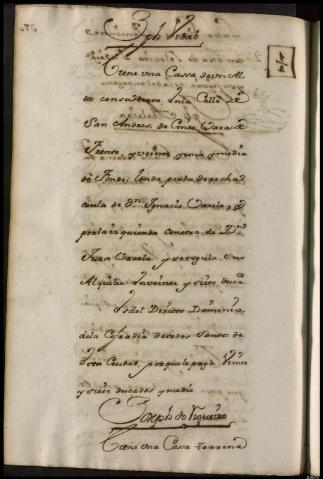 Joseph Vidal
Tiene una Cassa de un Al
to con su tienda en la Calle de
San Andres, de Cinco Varas de
Frente, y veinte y una y media
de Fondo; linda por la derecha
con la de Dn. Ignacio Varela, y
por la izquierda con otra de Dn.
Juan Varela y se regula su
Alquiler en veinte y siete duca
Es del Directo Dominio
de la Cofradia de todos Santos de
esta Ciudad, porque le paga Veinte
y siete ducados y medio
Joseph do Figueiro
Tiene una Cassa terrena